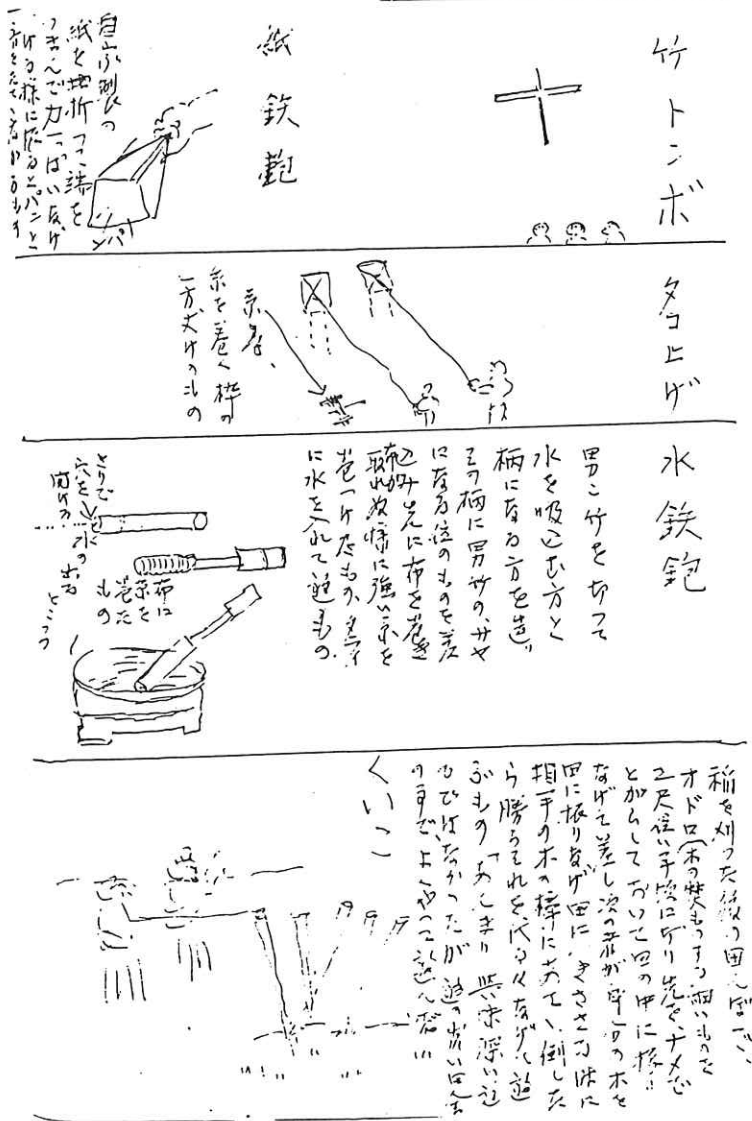 竹トンボ
紙鉄砲
自家製の
紙を折って端を
つまんで力一っぱいなげ
ける様に振るとパンと
パン
タコ上げ
糸巻、
糸を巻く枠の
一方丈けのもの
水鉄鉋
男竹を切って
水を吸込む方と
柄になる方を造り
その柄に男竹の、サヤ
になる位のものを差
込み先に布を巻き
取れぬ様に強い糸を
巻つけたもの、タライ
に水を入れて遊もの。
きりで
穴を
開ける
水の出る
ところ
布に
糸を
巻た
もの
稲を刈った後の田んぼで、
オドロ(木の焚もつする細いものを
2尺位い手頃に切り先を、ナメで
とがらして おいて田の中に
なげて差し次の者が 自分の木を
田に振りなげ田に つきささる時に
相手の木の棒にあて、倒した
ら勝ちそれを代る代るなげて遊
ぶもの、あんまり 興味深い遊
びではなかったが 遊の少い田舎
の事で、よくやって遊んだ
くいこ